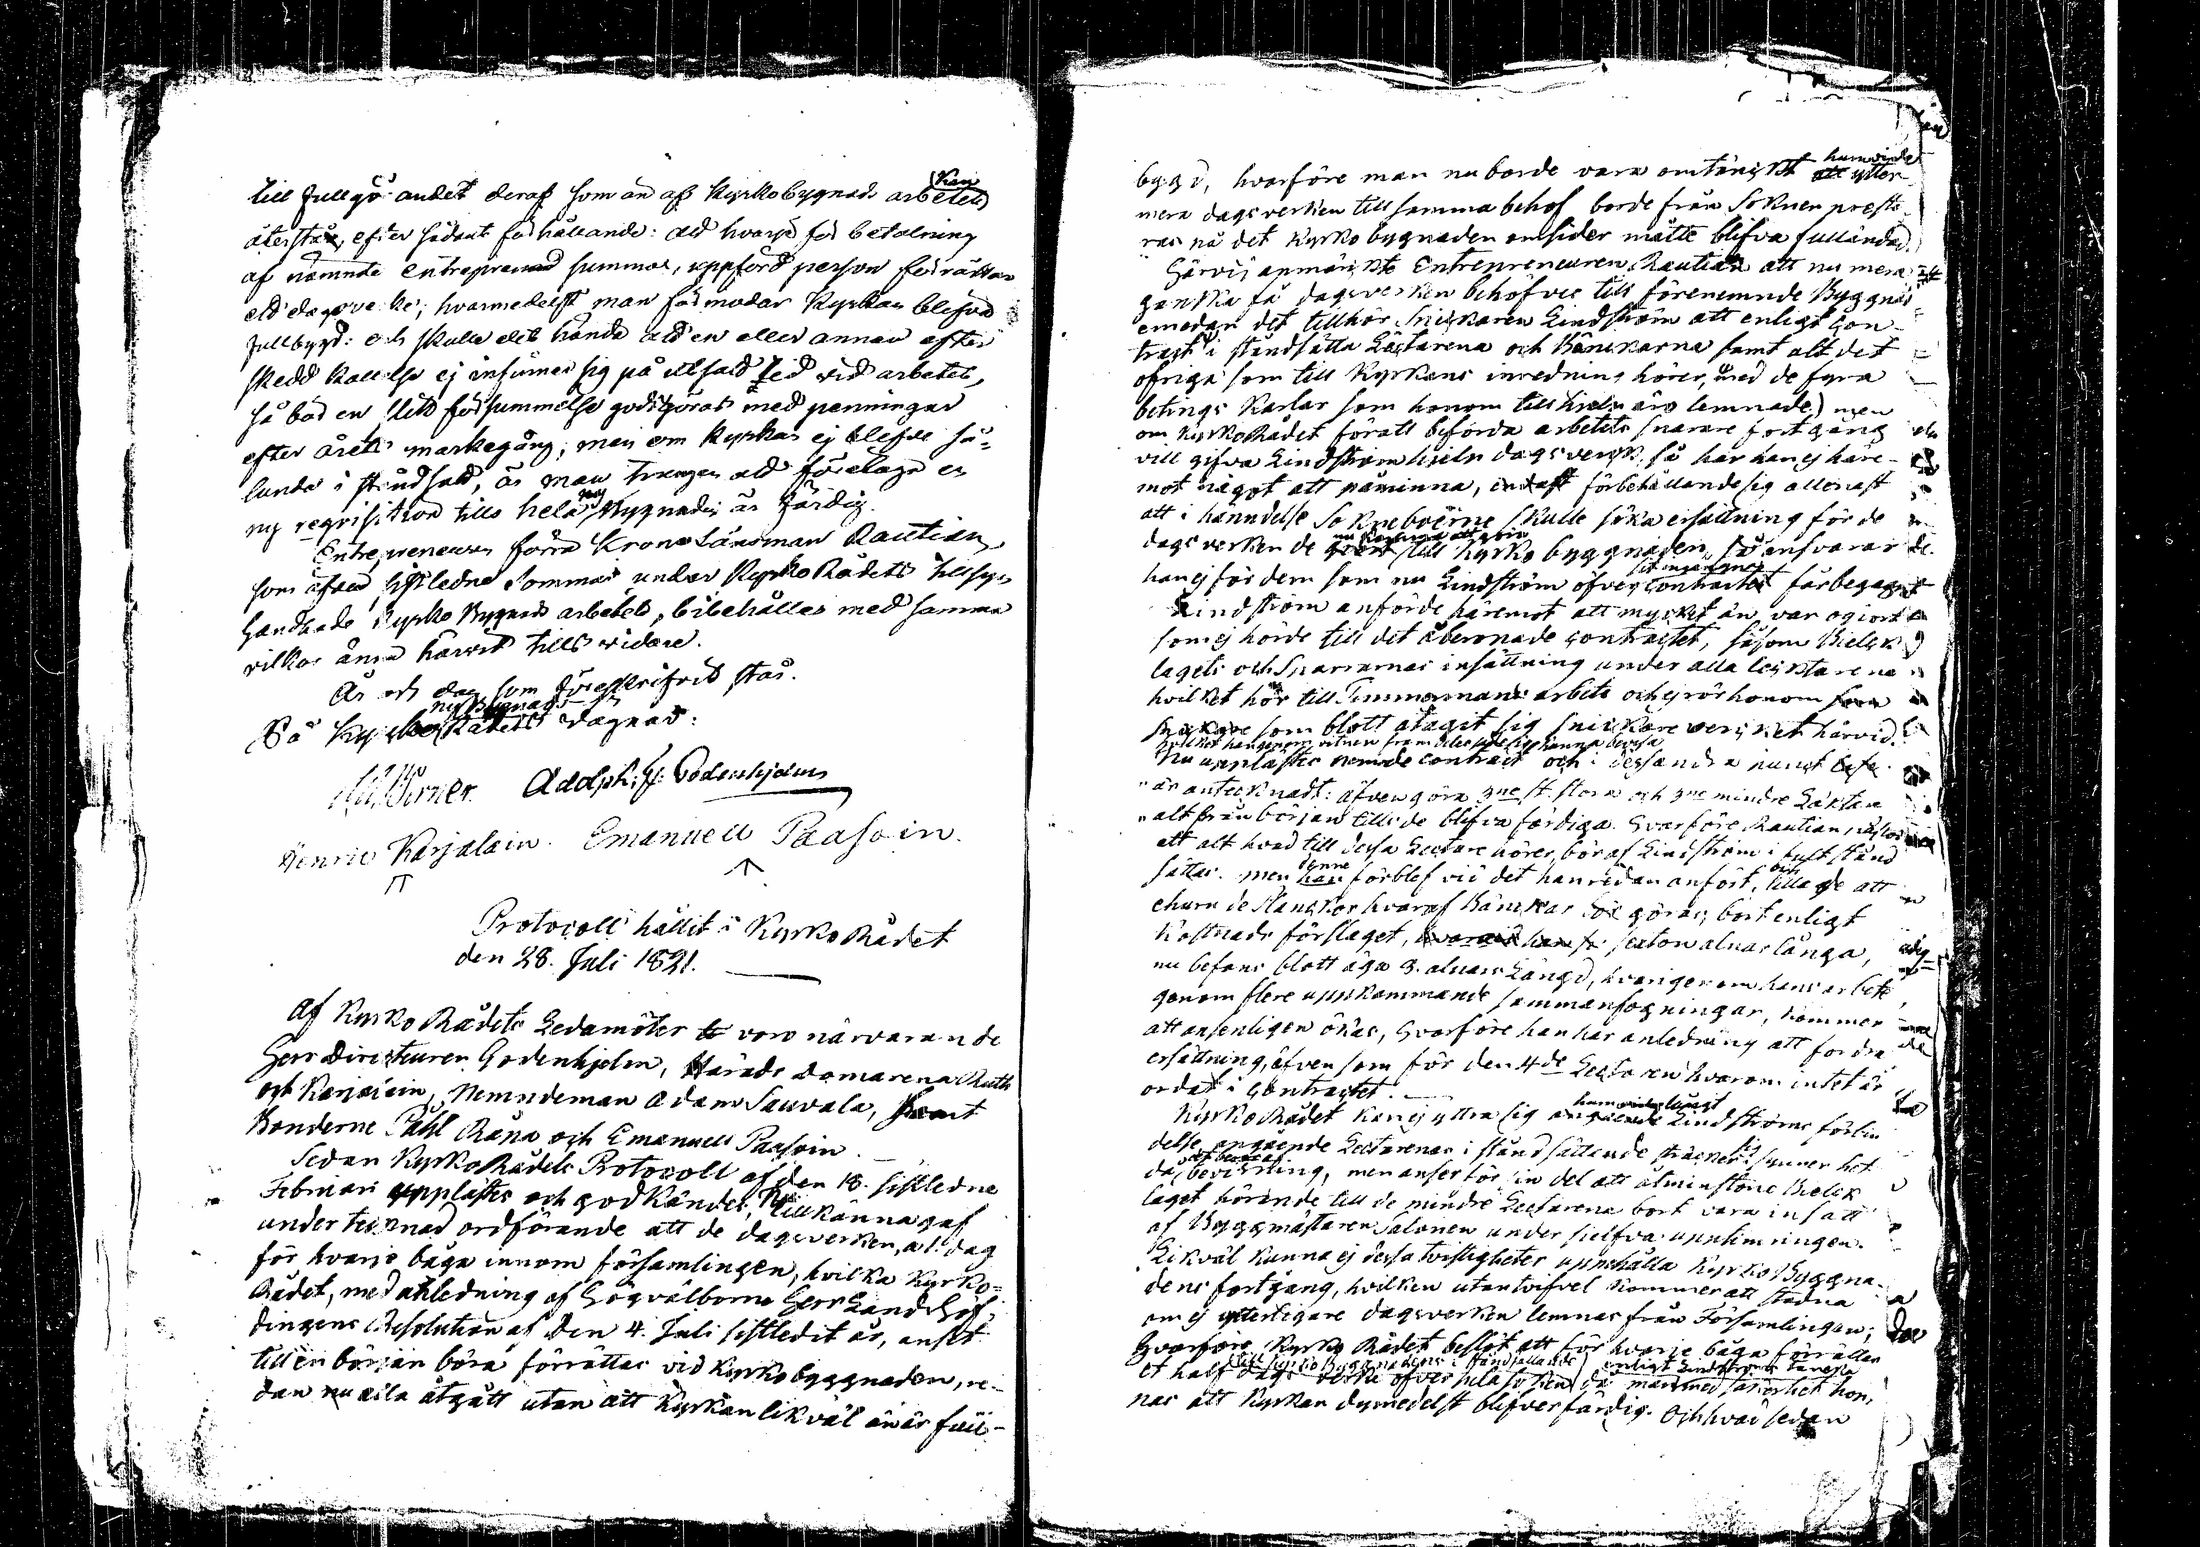 till fullgörandet deraf som än af Kyrkobygnads arbetet kan
återstår, efter sådant förhållande: att hvarje för betalning
af nämnde entreprenad summa, uppförd person förrättar
ett dagsverke; hvarmedelst man förmodar Kyrkan blifva
fullbygd: och skulle det hända att en eller annan efter
skedd kallelse ej infinner sig på utsatt tid vid arbetet,
så bör en slik försummelse godtgöras med penningar
efter årets markegång; men om Kyrkan ej blefve så-
lunda i ståndsatt, är man tvungen att företaga en
ny reqvisition tills hela nybygnaden är färdig.
Entrepreneuren förra Krono Länsman Rautian,
som äfven sistledne Sommar under Kyrko Rådets tillsyn
handhade Kyrko Bygnads arbetet, bibehålles med samma
vilkor ännu härvid tills vidare.
År och dag som föreskrifvit står.
På Kyrko nybygnads Rådets vägnar:
Adolph. F. Godenhjelm
Henric Karjalain. Emanuell Paasoin.
Protocoll hållit i Kyrko Rådet
den 28. Juli 1821.
Af Kyrko Rådets Ledamöter voro närvarande
Herr Directeuren Godenhjelm, Härads domarena Ruth
och Karjalain, Nemndeman Adam Sauvala, samt
Bönderne Påhl Räna och Emanuell Paasoin.
Sedan Kyrko Rådets Protocoll af den 18. sistledne
Februari upplästes och godkändes, tillkännagaf
undertecknad ordförande att de dagsverken, a 1. dag
för hvarje båga innom församlingen, hvilka Kyrko-
Rådet, med anledning af Högvälborne Herr Landshöf-
dingens Resolution af den 4. Juli sistledit år, ansett
till en början böra förrättas vid Kyrkobyggnaden, re-
dan nu alla åtgått utan att Kyrkan likväl än är full-
bygd, hvarföre man nu borde vara omtänkt huruvida ytter-
mera dagsverken till samma behof borde från Soknen preste-
ras på det Kyrkobygnaden omsider måtte blifva fulländad.
Härvid anmärkte Entrepreneuren Rautian att nu mera
ganska få dagsverken behöfves till förenemnde Byggnad
emedan det tillhör Snickaren Lindström att enligt Con-
tract i ståndsätta Lectarena och Bänckarna samt alt det
öfriga som till Kyrkans inredning hörer, med de fyra
betings Karlar som honom till hielp äro lemnade) men
om KyrkoRådet föratt befordra arbetets snarare fortgång
vill gifva Lindström hielp dagsverk, så har han ej häre-
mot något att påminna, förbehållande sig allenast
att i händelse Sokneboerne skulle söka ersättning för de
dagsverken de nu komma att göra till Kyrko byggnaden, så ansvarar
han ej för dem som nu Lindström öfver contractet
Lindström anförde häremot att mycket än var ogiort
som ej hörde till det åberopade contractet, såsom Bielck
lagets och Sparrarnas insättning under alla lecktarena
hvilket hör till Timmermans arbete och ej rör honom
som blott åtagit sig snickare verket härvid.
Nu upplästes nemnde contract och i dess andra punct
är antecknadt: äfven göra 2ne st. stora och 2ne mindre Läktare
alt från början tills de blifva färdiga. Hvarföre Rautian påstod
att alt hvad till dessa Lectare hörer, bör af Lindström i fult stånd
sättas. men denne förblef vid det han redan anfört, och tillade att
ehuru de Plankor hvaraf Bänckar göras, bort enligt
Kostnads förslaget, sexton alnar långa,
nu befans blott äga 9. alnars Längd, hvarigenom hans arbete
genom flere uppkommande sammanfogningar, kommer
att ansenligen ökas, Hvarföre han har anledning att fordra
ersättning, äfven som för den 4de Lectaren hvarom intet är
ordat i Contractet.
KyrkoRådet kan ej yttra sig huruvida långt Lindströms förbin-
delse angående Lectarenas i ståndsättande sträcker sig
men anser för sin del att åtminstone Bielck
laget hörande till de mindre Lectarena bort vara insatt
af Byggmästaren Salonen under sielfva upptimringen.
Likväl kunna ej dessa tvistigheter uppehålla Kyrko Byggna-
dens fortgång, hvilken utan tvifvel kommer att stadna
om ej ytterligare dagsverken lemnas från Församlingen;
Hvarföre Kyrko Rådet beslöt att för hvarje båga förrättas
et half dags verke öfver hela soknen, då man med säkerhet
nas att Kyrkan dymedelst blifver färdig. Och hvad sedan